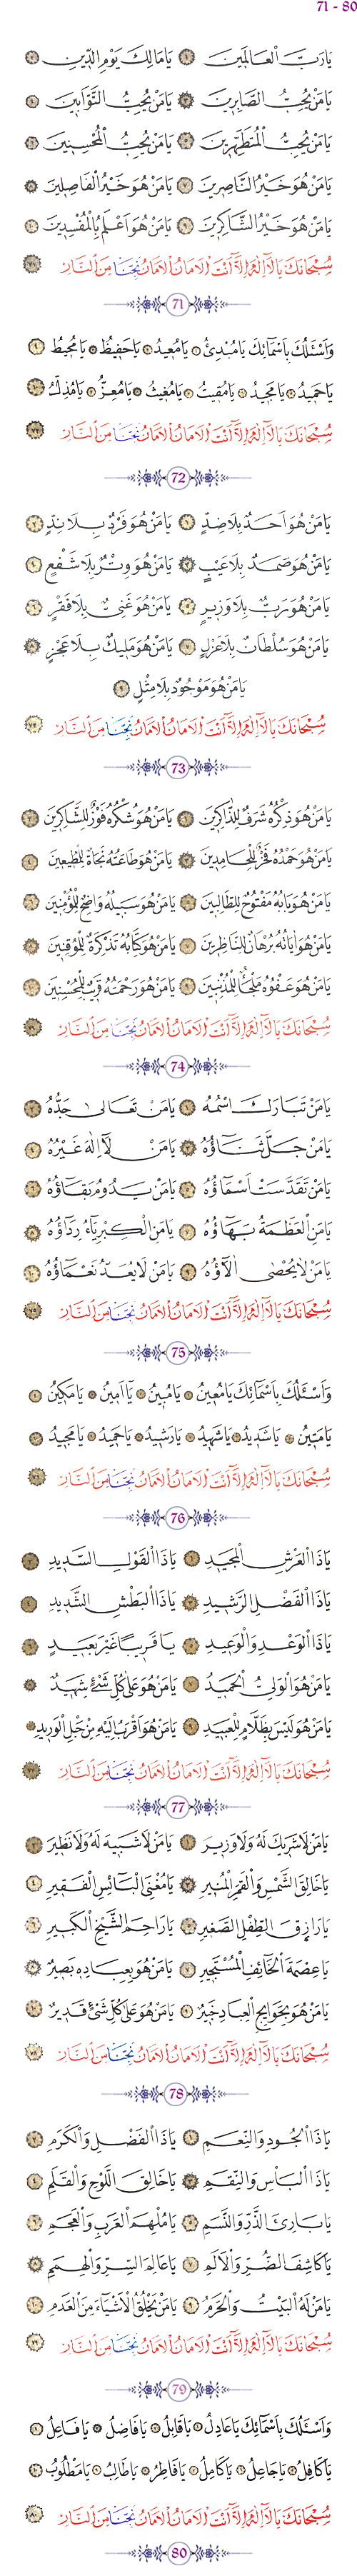 71 - 80
يَارَبَّ الْعَالَمِينَ ١ يَامَالِكَ يَوْمِ الدِّينِ ٢
يَامَنْ يُحِبُّ الصَّابِرِينَ ٣ يَامَنْ يُحِبُّ التَّوَّابِينَ ٤
يَامَنْ يُحِبُّ الْمُتَطَهِّرِينَ ٥ يَامَنْ يُحِبُّ الْمُحْسِنِينَ ٦
يَامَنْ هُوَ خَيْرُ النَّاصِرِينَ ٧ يَامَنْ هُوَ خَيْرُ الْفَاصِلِينَ ٨
يَامَنْ هُوَ خَيْرُ الشَّاكِرِينَ ٩ يَامَنْ هُوَ اَعْلَمُ بِالْمُفْسِدِينَ ١٠
سُبْحَانَكَ يَالَآ اِلٰهَ اِلَّآ اَنْتَ الْاَمَانُ الْاَمَانُ نَجِّنَا مِنَ النَّارِ ٧١
71
وَاَسْئَلُكَ بِاَسْمَائِكَ يَامُبْدِئُ ١ يَامُعِيدُ ٢ يَاحَفِيظُ ٣ يَامُحِيطُ ٤
يَاحَمِيدُ ٥ يَامَجِيدُ ٦ يَامُقِيتُ ٧ يَامُغِيثُ ٨ يَامُعِزُّ ٩ يَامُذِلُّ ١٠
سُبْحَانَكَ يَالَآ اِلٰهَ اِلَّآ اَنْتَ الْاَمَانُ الْاَمَانُ نَجِّنَا مِنَ النَّارِ ٧٢
72
يَامَنْ هُوَ اَحَدٌ بِلَاضِدٍّ ١ يَامَنْ هُوَ فَرْدٌ بِلَا نِدٍّ ٢
يَامَنْ هُوَ صَمَدٌ بِلَاعَيْبٍ ٣ يَامَنْ هُوَ وِتْرٌ بِلَا شَفْعٍ ٤
يَامَنْ هُوَ رَبٌّ بِلَاوَزِيرٍ ٥ يَامَنْ هُوَ غَنِيٌّ بِلَا فَقْرٍ ٦
يَامَنْ هُوَ سُلْطَانٌ بِلَاعَزْلٍ ٧ يَامَنْ هُوَ مَلِيكٌ بِلَا عَجْزٍ ٨
يَامَنْ هُوَ مَوْجُودٌ بِلَامِثْلٍ ٩
سُبْحَانَكَ يَالَآ اِلٰهَ اِلَّآ اَنْتَ الْاَمَانُ الْاَمَانُ نَجِّنَا مِنَ النَّارِ ٧٣
73
يَامَنْ هُوَ ذِكْرُهُ شَرَفٌ لِلذَّاكِرِينَ ١ يَامَنْ هُوَ شُكْرُهُ فَوْزٌ لِلشَّاكِرِينَ ٢
يَامَنْ هُوَ حَمْدُهُ فَخْرٌ لِلْحَامِدِينَ ٣ يَامَنْ هُوَ طَاعَتُهُ نَجَاةٌ لِلْمُطِيعِينَ ٤
يَامَنْ هُوَ بَابُهُ مَفْتُوحٌ لِلطَّالِبِينَ ٥ يَامَنْ هُوَ سَبِيلُهُ وَاضِحٌ لِلْمُؤْمِنِينَ ٦
يَامَنْ هُوَ اٰيَاتُهُ بُرْهَانٌ لِلنَّاظِرِينَ ٧ يَامَنْ هُوَ كِتَابُهُ تَذْكِرَةٌ لِلْمُوقِنِينَ ٨
يَامَنْ هُوَ عَفْوُهُ مَلْجَأٌ لِلْمُذْنِبِينَ ٩ يَامَنْ هُوَ رَحْمَتُهُ قَرِيبٌ لِلْمُحْسِنِينَ ١٠
سُبْحَانَكَ يَالَآ اِلٰهَ اِلَّآ اَنْتَ الْاَمَانُ الْاَمَانُ نَجِّنَا مِنَ النَّارِ ٧٤
74
يَامَنْ تَبَارَكَ اسْمُهُ ١ يَامَنْ تَعَالٰى جَدُّهُ ٢
يَامَنْ جَلَّ ثَنَاؤُهُ ٣ يَامَنْ لَآ اِلٰهَ غَيْرُهُ ٤
يَامَنْ تَقَدَّسَتْ اَسْمَاؤُهُ ٥ يَامَنْ يَدُومُ بَقَاؤُهُ ٦
يَامَنِ الْعَظَمَةُ بَهَاؤُهُ ٧ يَامَنِ الْكِبْرِيَاءُ رِدَاؤُهُ ٨
يَامَنْ لَايُحْصٰى اٰلَاؤُهُ ٩ يَامَنْ لَايُعَدُّ نَعْمَاؤُهُ ١٠
سُبْحَانَكَ يَالَآ اِلٰهَ اِلَّآ اَنْتَ الْاَمَانُ الْاَمَانُ نَجِّنَا مِنَ النَّارِ ٧٥
75
وَاَسْئَلُكَ بِاَسْمَائِكَ يَامُعِينُ ١ يَامُبِينُ ٢ يَآاَمِينُ ٣ يَامَكِينُ ٤
يَامَتِينُ ٥ يَاشَدِيدُ ٦ يَاشَهِيدُ ٧ يَارَشِيدُ ٨ يَاحَمِيدُ ٩ يَامَجِيدُ ١٠
سُبْحَانَكَ يَالَآ اِلٰهَ اِلَّآ اَنْتَ الْاَمَانُ الْاَمَانُ نَجِّنَا مِنَ النَّارِ ٧٦
76
يَاذَا الْعَرْشِ الْمَجِيدِ ١ يَاذَا الْقَوْلِ السَّدِيدِ ٢
يَاذَا الْفَضْلِ الرَّشِيدِ ٣ يَاذَا الْبَطْشِ الشَّدِيدِ ٤
يَاذَا الْوَعْدِ وَالْوَعِيدِ ٥ يَا قَرِيبًا غَيْرَ بَعِيدٍ ٦
يَامَنْ هُوَ الْوَلِيُّ الْحَمِيدُ ٧ يَامَنْ هُوَ عَلٰى كُلِّ شَيْءٍ شَهِيدٌ ٨
يَامَنْ هُوَ لَيْسَ بِظَلَّامٍ لِلْعَبِيدِ ٩ يَامَنْ هُوَ اَقْرَبُ اِلَيْهِ مِنْ حَبْلِ الْوَرِيدِ ١٠
سُبْحَانَكَ يَالَآ اِلٰهَ اِلَّآ اَنْتَ الْاَمَانُ الْاَمَانُ نَجِّنَا مِنَ النَّارِ ٧٧
77
يَامَنْ لَاشَرِيكَ لَهُ وَلَاوَزِيرَ ١ يَامَنْ لَاشَبِيهَ لَهُ وَلَانَظِيرَ ٢
يَاخَالِقَ الشَّمْسِ وَالْقَمَرِ الْمُنِيرِ ٣ يَامُغْنِيَ الْبَائِسِ الْفَقِيرِ ٤
يَارَازِقَ الطِّفْلِ الصَّغِيرِ ٥ يَارَاحِمَ الشَّيْخِ الْكَبِيرِ ٦
يَاعِصْمَةَ الْخَائِفِ الْمُسْتَجِيرِ ٧ يَامَنْ هُوَ بِعِبَادِهِ بَصِيرٌ ٨
يَامَنْ هُوَ بِحَوَايِجِ الْعِبَادِ خَبِيرٌ ٩ يَامَنْ هُوَ عَلٰى كُلِّ شَيْءٍ قَدِيرٌ ١٠
سُبْحَانَكَ يَالَآ اِلٰهَ اِلَّآ اَنْتَ الْاَمَانُ الْاَمَانُ نَجِّنَا مِنَ النَّارِ ٧٨
78
يَاذَا الْجُودِ وَالنِّعَمِ ١ يَاذَا الْفَضْلِ وَالْكَرَمِ ٢
يَاذَا الْبَأْسِ وَالنِّقَمِ ٣ يَاخَالِقَ اللَّوْحِ وَالْقَلَمِ ٤
يَابَارِئَ الذَّرِّ وَالنَّسَمِ ٥ يَامُلْهِمَ الْعَرَبِ وَالْعَجَمِ ٦
يَاكَاشِفَ الضُّرِّ وَالْاَلَمِ ٧ يَاعَالِمَ السِّرِّ وَالْهِمَمِ ٨
يَامَنْ لَهُ الْبَيْتُ وَالْحَرَمُ ٩ يَامَنْ يَخْلُقُ الْاَشْيَاءَ مِنَ الْعَدَمِ ١٠
سُبْحَانَكَ يَالَآ اِلٰهَ اِلَّآ اَنْتَ الْاَمَانُ الْاَمَانُ نَجِّنَا مِنَ النَّارِ ٧٩
79
وَاَسْئَلُكَ بِاَسْمَائِكَ يَاعَادِلُ ١ يَاقَابِلُ ٢ يَافَاضِلُ ٣ يَافَاعِلُ ٤
يَاكَافِلُ ٥ يَاجَاعِلُ ٦ يَاكَامِلُ ٧ يَافَاطِرُ ٨ يَاطَالِبُ ٩ يَامَطْلُوبُ ١٠
سُبْحَانَكَ يَالَآ اِلٰهَ اِلَّآ اَنْتَ الْاَمَانُ الْاَمَانُ نَجِّنَا مِنَ النَّارِ ٨٠
80